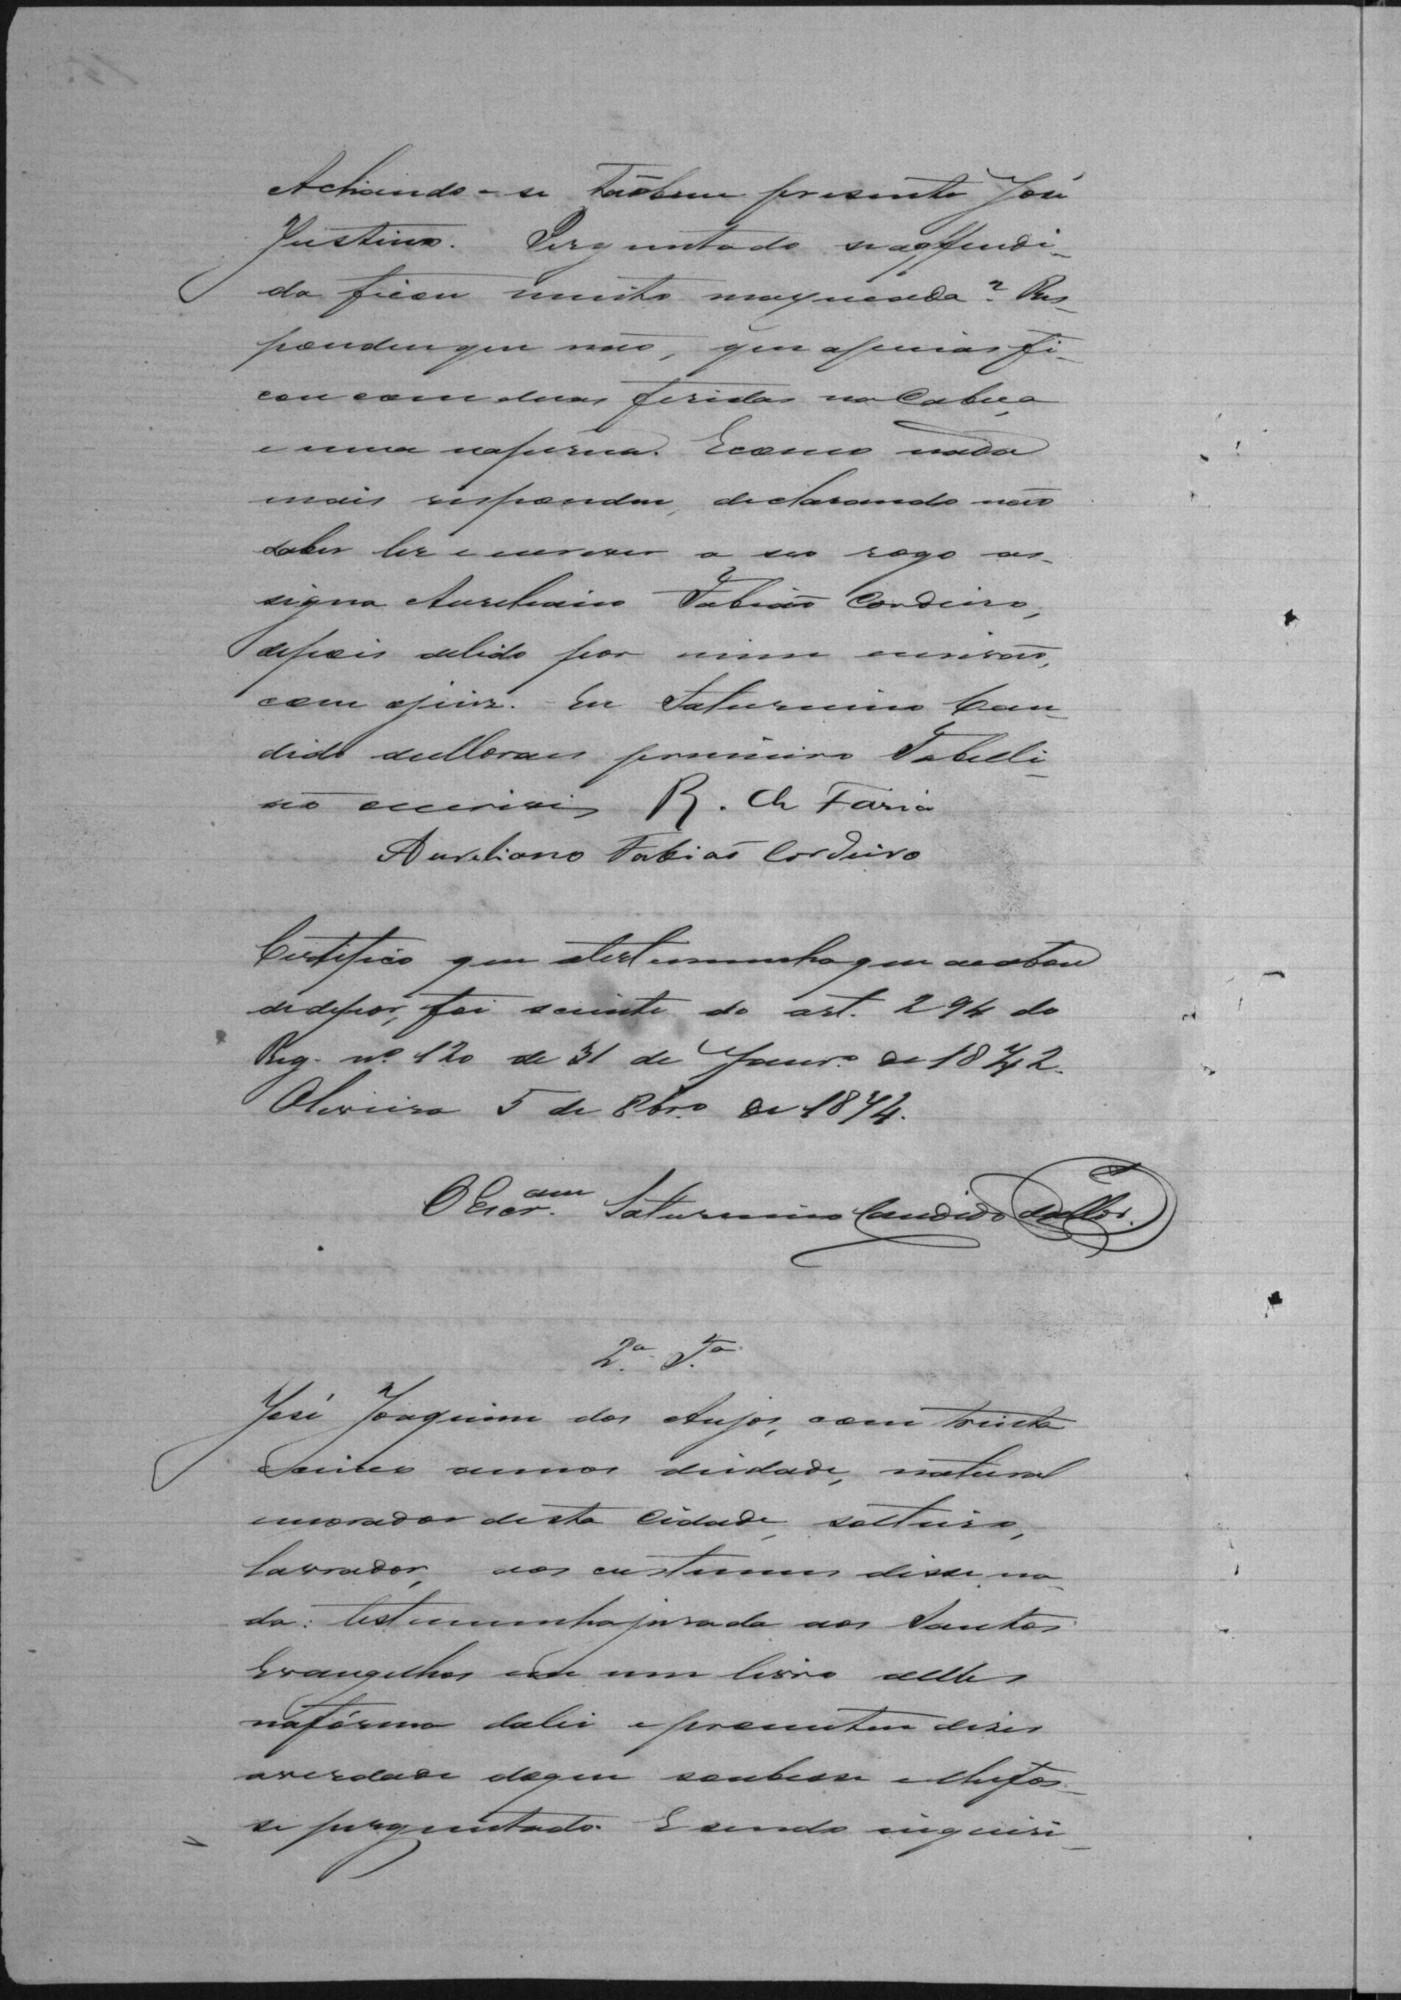 Achando-se tãobem presente José
Justino. Perguntado se a offendi-
da ficou muito maxucada? Res-
pondeu que não, que apenas fi-
cou com duas feridas na Cabeça
e uma na perna. E como nada
mais respondeu, declarando não
saber ler e escrever a seo rogo as-
signa Aureliano Fabião Cordeiro,
depois de lido por mim escrivão,
com o juiz. Eu Saturnino Can-
dido de Moraes primeiro Tabelli-
ão escrivi R. de Faria
Aureliano Fabiaõ Cordeiro
Certifico que a testemunha que acabou
de depor, foi sciente do art. 294 do
Reg. nº 120 de 31 de Janr.º de 1842.
Oliveira 5 de 8br.º de 1874.
O Escr.am Saturnino Candido de Mor.
2.ª T.ª
José Joaquim dos Anjos, com trinta
e cinco annos de idade, natural
e morador desta Cidade, solteiro,
lavrador, aos custumes disse na-
da: testemunha jurada aos Santos
Evangelhos em um livro delles
na fórma da lei e prometteu dizer
a verdade do que soubesse e lhe fos-
se perguntado. E sendo inquiri-